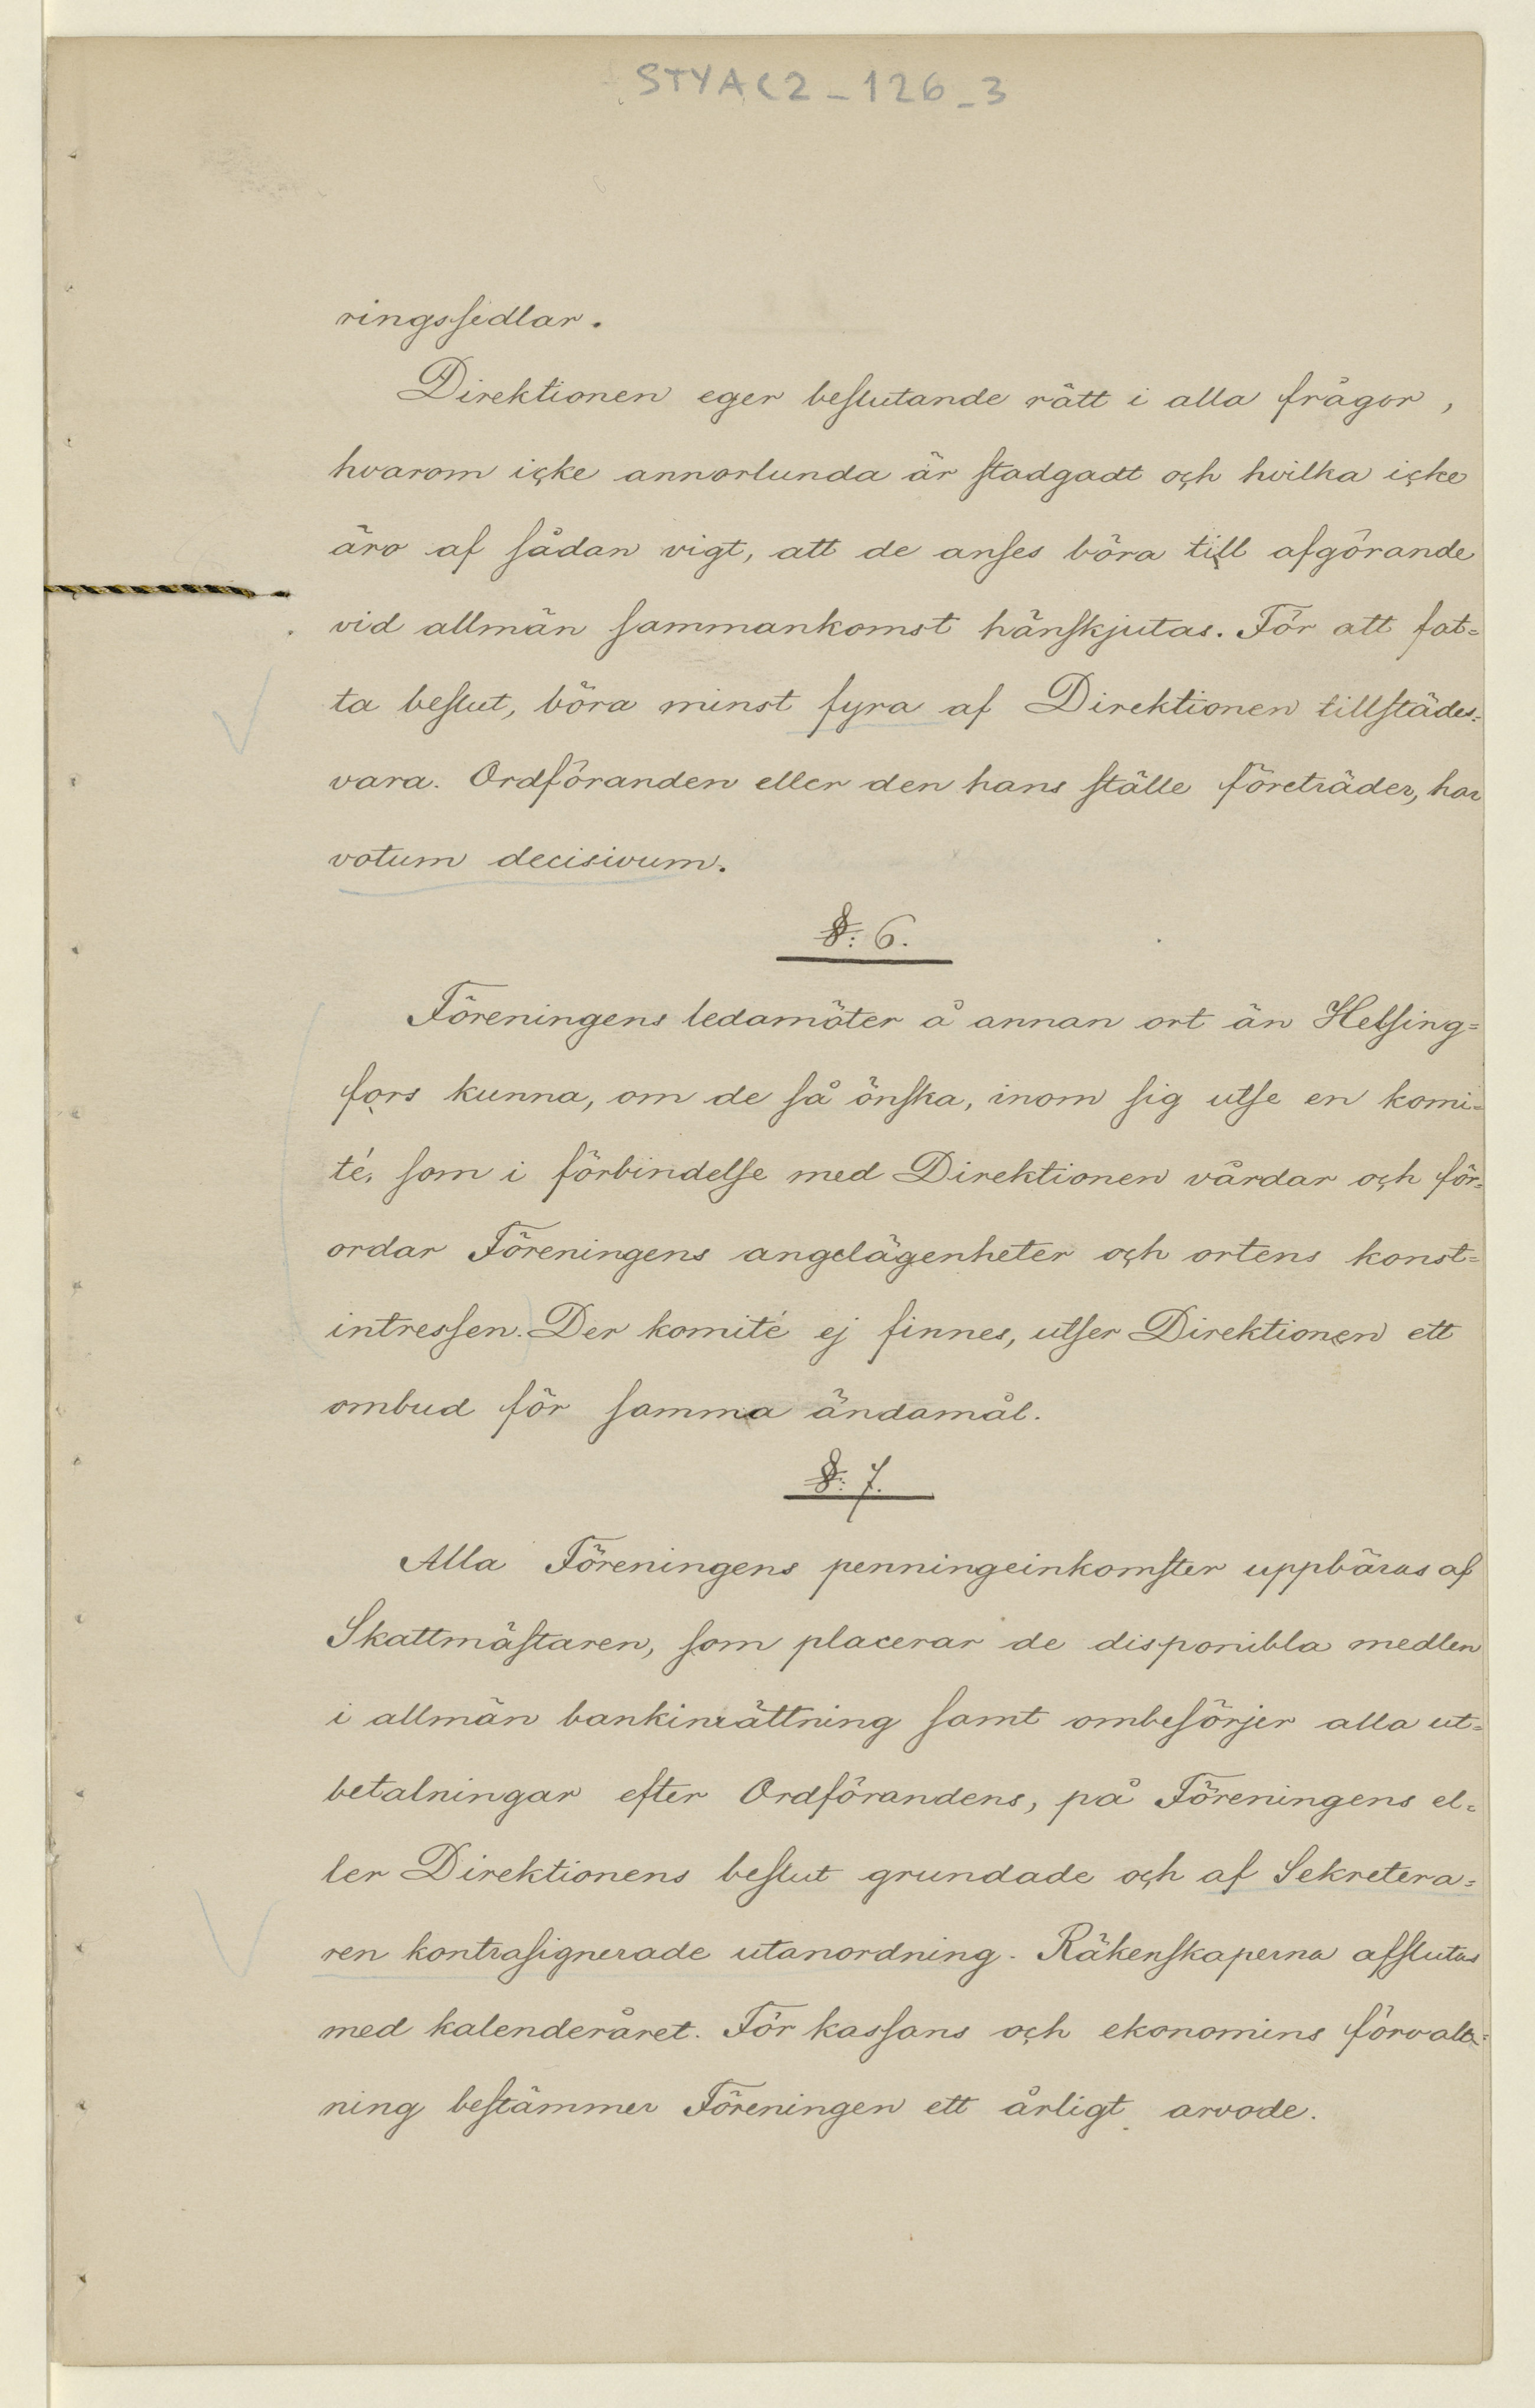 STYAC2_126_3
ringssedlar.
Direktionen eger beslutande rätt i alla frågor,
hvarom icke annorlunda är stadgadt och hvilka icke
äro af sådan vigt, att de anses böra till afgörande
vid allmän sammankomst hänskjutas. För att fat=
ta beslut, böra minst fyra af Direktionen tillstädes=
vara. Ordföranden eller den hans ställe företräder, har
votum decisivum.
§: 6.
Föreningens ledamöter å annan ort än Helsing=
fors kunna, om de så önska, inom sig utse en komi=
té, som i förbindelse med Direktionen vårdar och för=
ordar Föreningens angelägenheter och ortens konst=
intressen. Der komité ej finnes, utser Direktionen ett
ombud för samma ändamål.
§: 7.
Alla Föreningens penningeinkomster uppbäras af
Skattmästaren, som placerar de disponibla medlen
i allmän bankinrättning samt ombesörjer alla ut=
betalningar efter Ordförandens, på Föreningens el=
ler Direktionens beslut grundade och af Sekretera=
ren kontrasignerade utanordning. Räkenskaperna afslutas
med kalenderåret. För kassans och ekonomins förvalt=
ning bestämmer Föreningen ett årligt arvode.